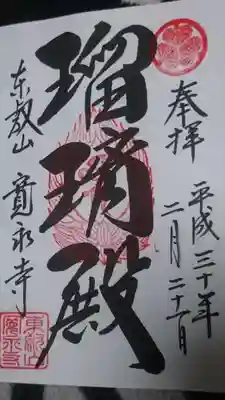 奉拝
平成三十年
二月二十一日
瑠璃殿
東叡山 寛永寺
東叡山
寛永寺